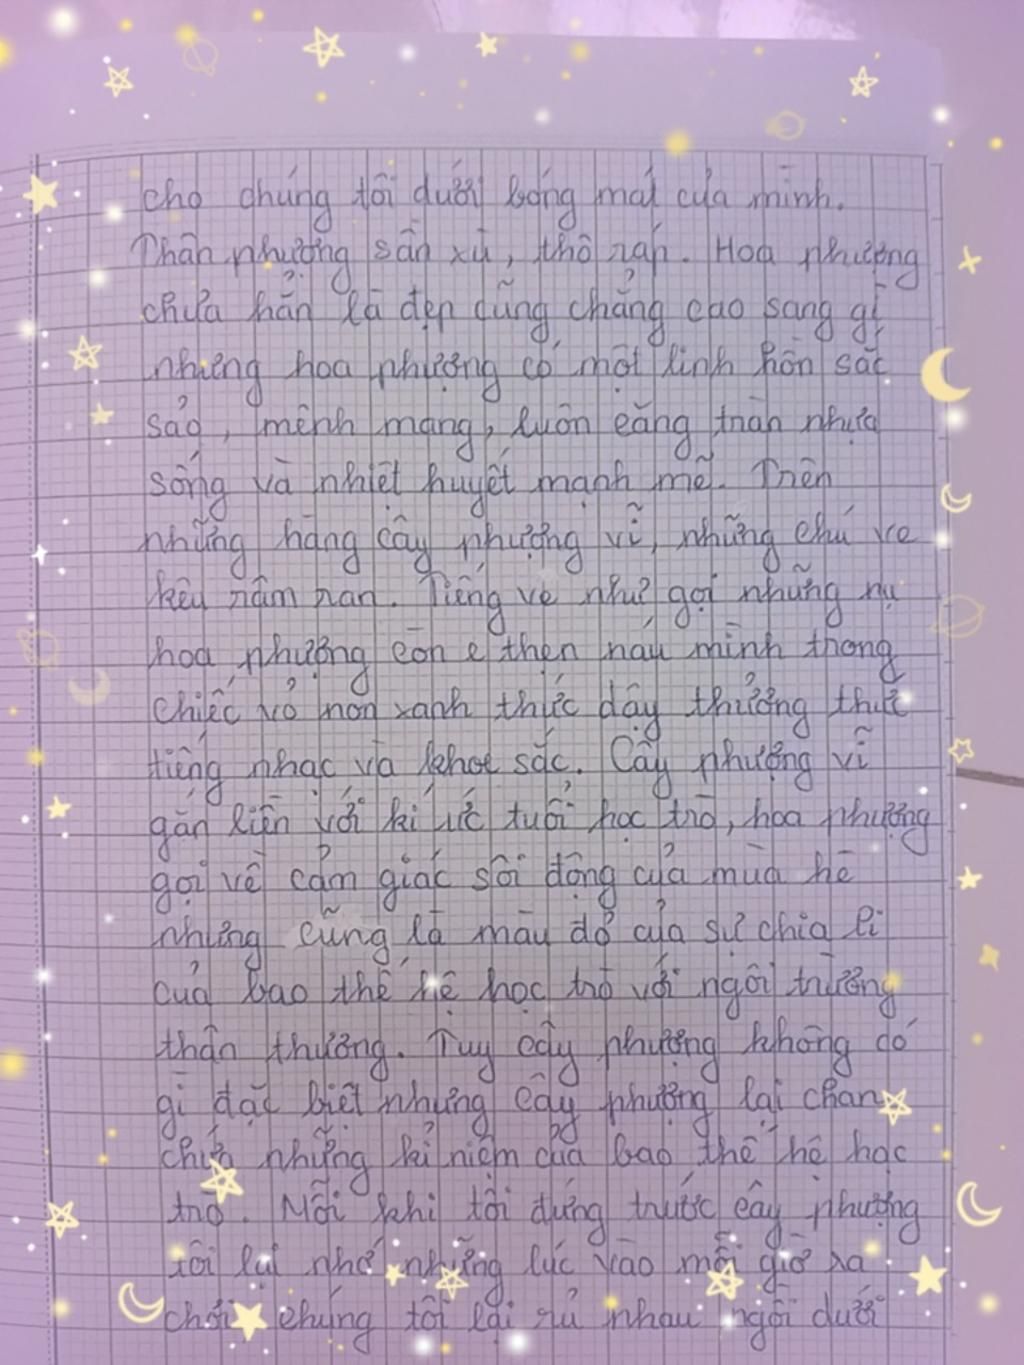 cho chúng tôi dưới bóng mát của mình.
Thân phượng sần xù, thô ráp. Hoa phượng
chưa hẳn là đẹp cũng chẳng cao sang gì
nhưng hoa phượng có một linh hồn sắc
sảo, mênh mang, luôn căng tràn nhựa
sống và nhiệt huyết mạnh mẽ. Trên
những hàng cây phượng vĩ, những chú ve
kêu râm ran. Tiếng ve như gọi những nụ
hoa phượng còn e thẹn náu mình trong
chiếc vỏ non xanh thức dậy thưởng thức
tiếng nhạc và khoe sắc. Cây phượng vĩ
gắn liền với kí ức tuổi học trò, hoa phượng
gọi về cảm giác sôi động của mùa hè
nhưng cũng là màu đỏ của sự chia li
của bao thế hệ học trò với ngôi trường
thân thương. Tuy cây phượng không có
gì đặc biệt nhưng cây phượng lại chan
chứa những kỉ niệm của bao thế hệ học
trò. Mỗi khi tôi đứng trước cây phượng
tôi lại nhớ những lúc vào mỗi giờ ra
chơi chúng tôi lại rủ nhau ngồi dưới